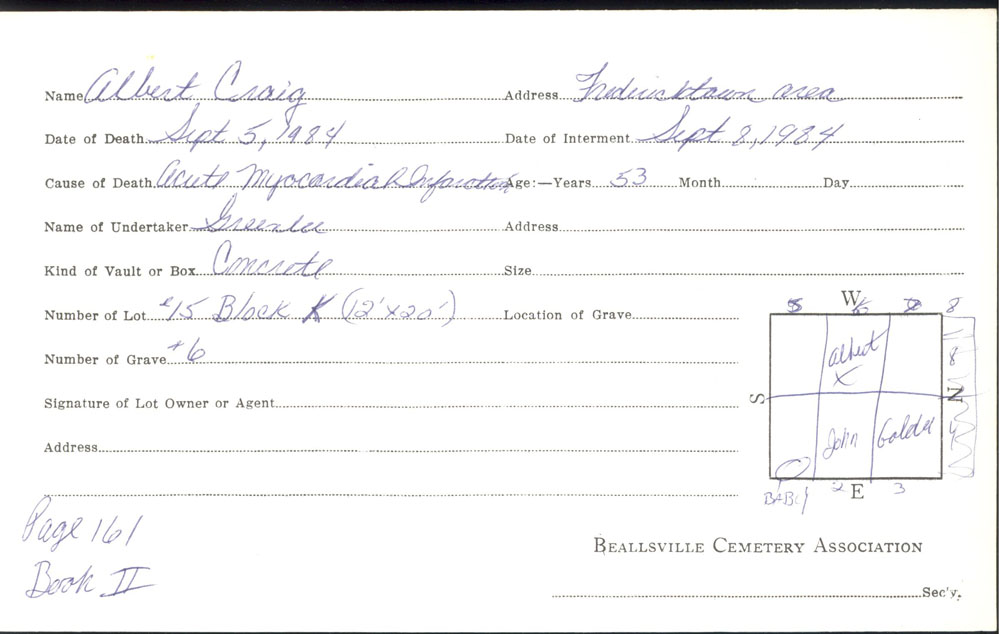 Name Albert Craig Address Fredericktown area
Date of Death Sept 5, 1984 Date of Interment Sept 8, 1984
Cause of Death Acute Myocardial Infarction Age:—Years 53 Month Day
Name of Undertaker Greenlee Address
Kind of Vault or Box Concrete Size
Number of Lot #15 Block K (12'x20') Location of Grave
W
5 6 7 8
Number of Grave #6
Albert 8
X
Signature of Lot Owner or Agent
S N
Address
John Golden 4
BABY 2 E 3
Page 161
Book II
BEALLSVILLE CEMETERY ASSOCIATION
Sec'y.